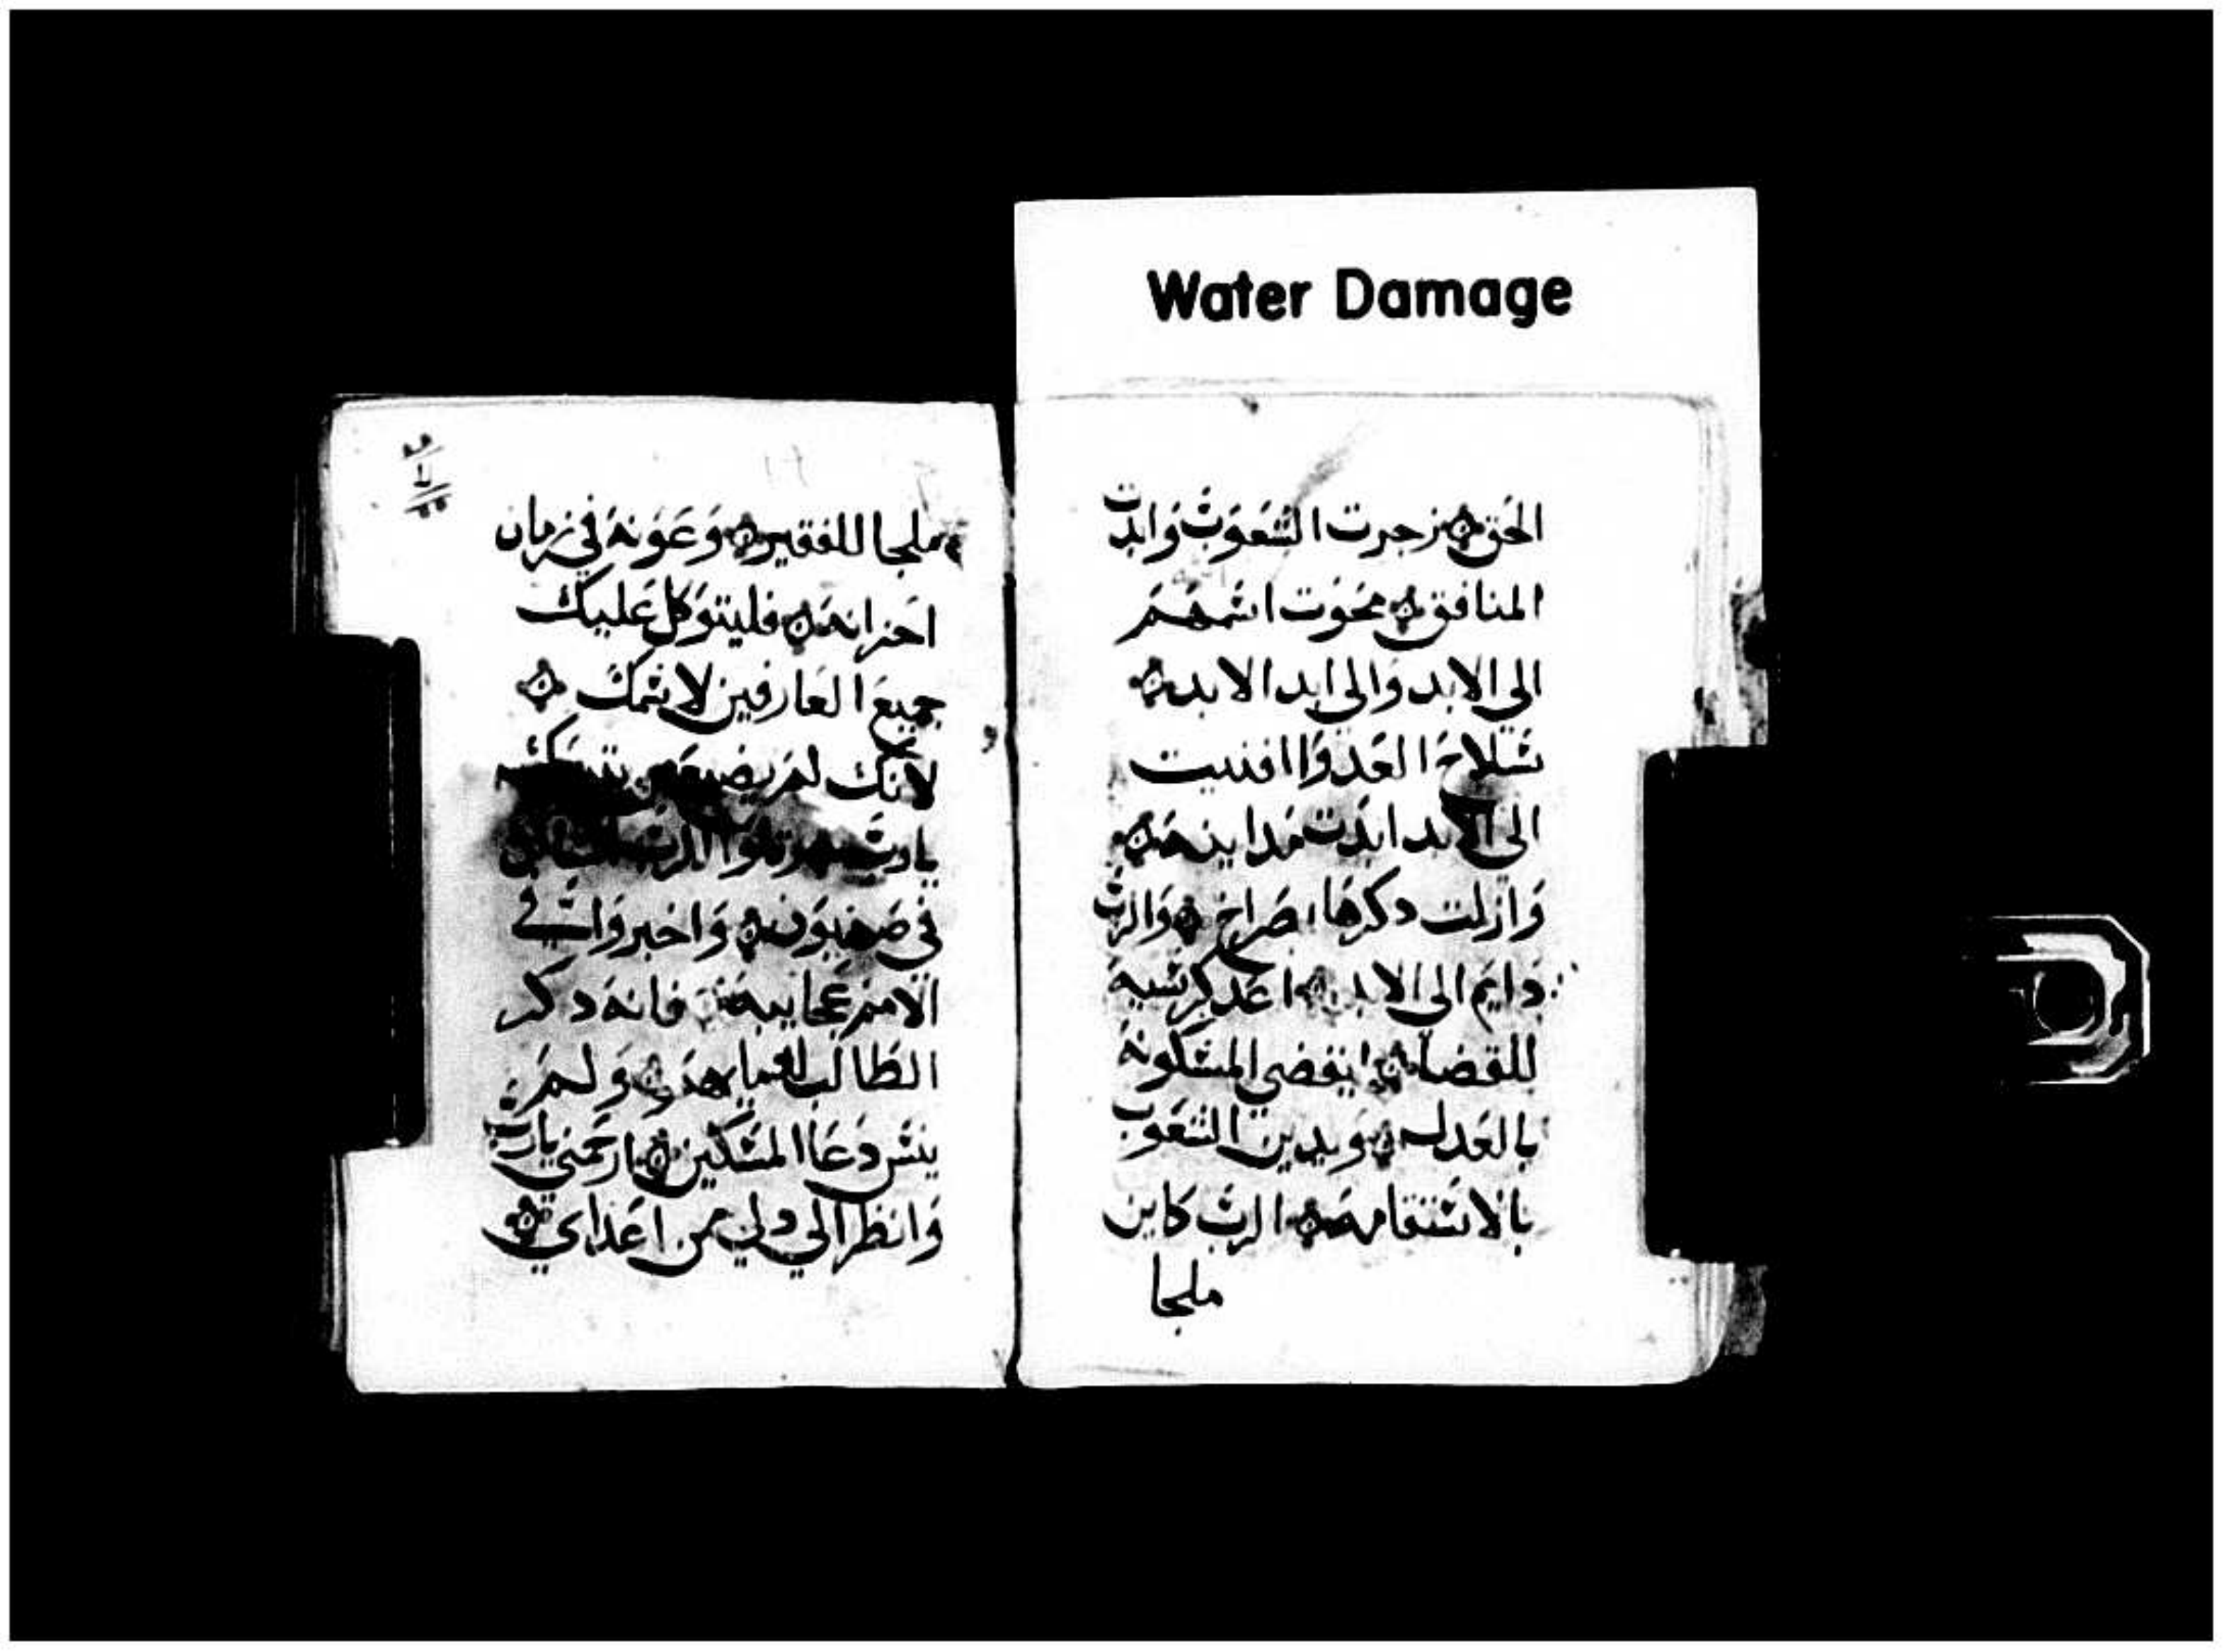 Water Damage
الحق زجرت الشعوب وابدت
المنافق محوت اسمهم
الى الابد والى ابد الابد
سلاح العدو اافنيت
الى الابد ابدت مداينه
وازلت دكرها صراخ والرب
دايم الى الابد اعد كرسيه
للقضا ليقضي المسكونه
بالعدل ويدين الشعوب
بالاستقامه الرب كاين
ملجا
ملجا للفقير وعونه في زمان
احزانه فليتوكل عليك
جميع العارفين لاسمك
لانك لم
يارب رتلوا للرب الساكن
في صهيون واخبروا في
الامم عجايبه فانه دكر
الطالب لدماهم ولم
ينس دعا المسكين ارحمني يارب
وانظر الي دلي من اعداي